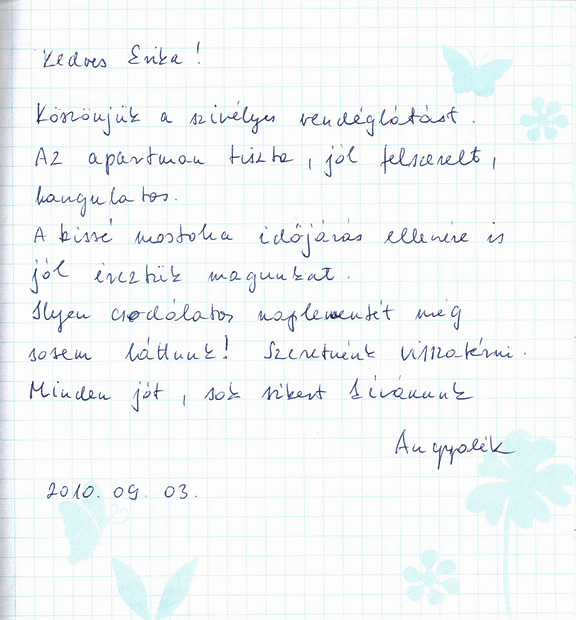 Kedves Erika!
Köszönjük a szivélyes vendéglátást.
Az apartman tiszta, jól felszerelt,
hangulatos.
A kissé mostoha időjárás ellenére is
jól éreztük magunkat.
Ilyen csodálatos naplementét még
sosem láttunk! Szeretnénk visszatérni.
Minden jót, sok sikert kívánunk
Angyalék
2010. 09. 03.